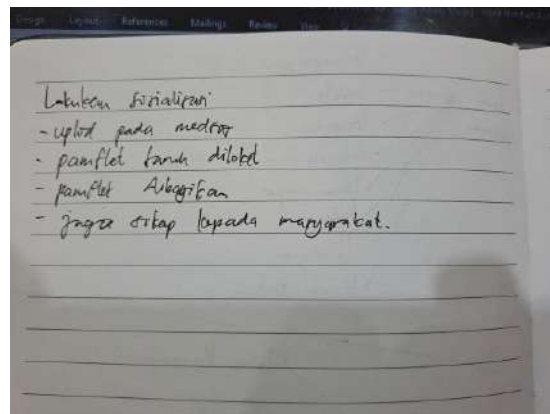 Design Layout References Mailings Review View
Lakukan sosialisasi
- uplod pada medsos
- pamflet taruh diloket
- pamflet dibagikan
- jaga sikap kepada masyarakat.